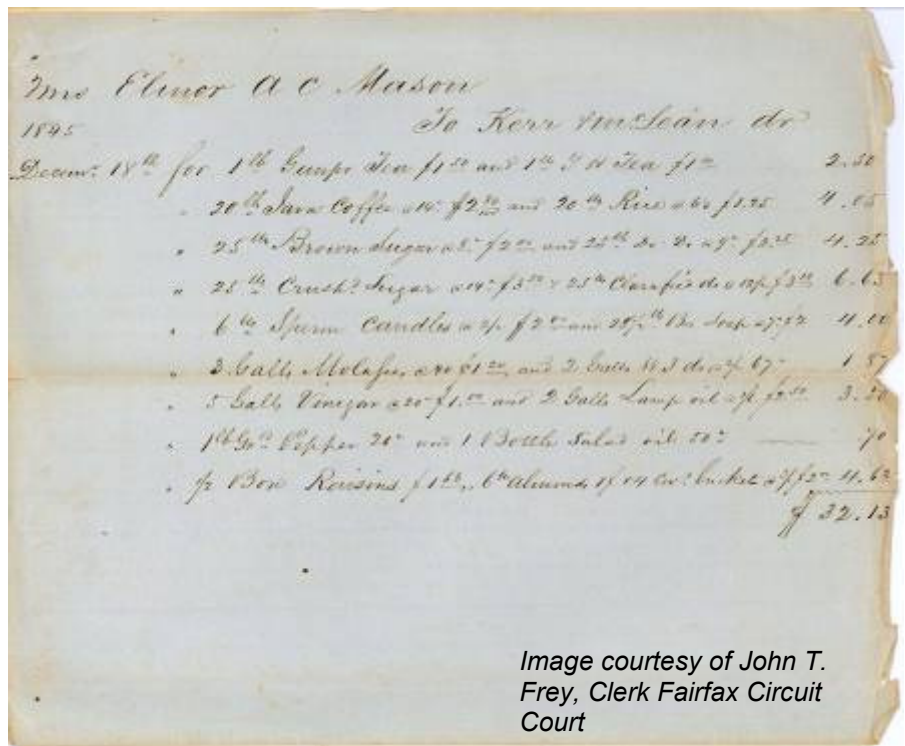 Mrs Elinor A C Mason
1845 To Kerr & McLean dr
Decemr. 18th for 1 lb Gunpr Tea $1 50 and 1 lb Tea $1 2.50
" 20 lb Java Coffee a 14c $2 80 and 20 lb Rice a 6¼ $1.25 4.05
" 25 lb Brown Sugar a 8c $2 00 and 25 lb Do Do a 9c $2.25 4.25
" 25 lb Crushd. Sugar a 14c $3 50 & 25 lb Clarified do a $3 6.63
" 6 lb Sperm Candles a $2 00 and lb Br Soap a 7c $2 4.00
" 3 Galls Molasses a 40 $1 20, and 2 Galls do a 67c 1.87
" 5 Galls Vinegar a 20c $1.00 and 2 Galls Lamp oil a $2 50 3.50
" 1 lb Gro Pepper 20c and 1 Bottle Salad oil 50c 70
" ½ Box Raisins $1, 6 lb Almonds bucket $2 4.63
$ 32.13
Image courtesy of John T.
Frey, Clerk Fairfax Circuit
Court